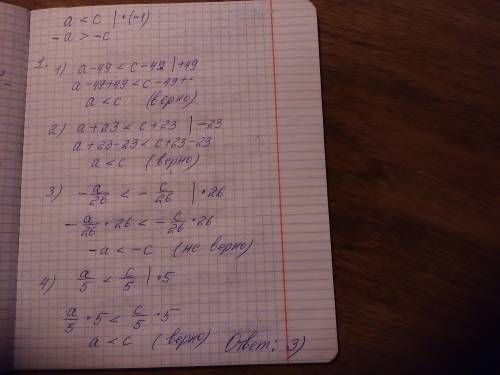 a < c | •(-1)
-a > -c
1.
1) a-49 < c-49 | +49
a-49+49 < c-49++
a < c (верно)
2) a+23 < c+23 | -23
a+23-23 < c+23-23
a < c (верно)
3) -a/26 < -c/26 | •26
-a/26 • 26 < -c/26 • 26
-a < -c (не верно)
4) a/5 < c/5 | •5
a/5 • 5 < c/5 • 5
a < c (верно) Ответ: 3)